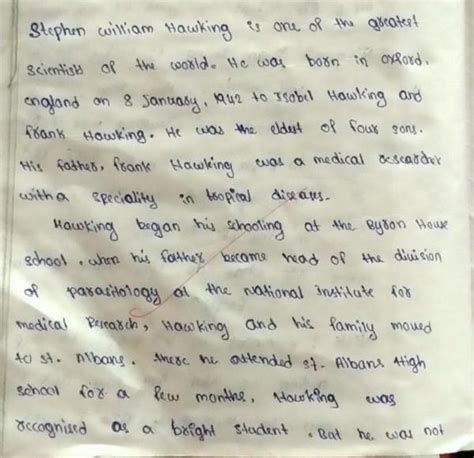 Stephen william Hawking is one of the greatest
scientists of the world. He was born in oxford.
england on 8 January, 1942 to Isobil Hawking and
frank Hawking. He was the eldest of four sons.
His father, frank Hawking was a medical researcher
with a speciality in tropical diseases.
Hawking began his schooling at the Byron House
school. when his father became head of the division
of parasitology at the national institute for
medical Research, Hawking and his family moved
to st. Albans. there he attended st. Albans High
school for a few months, Hawking was
recognised as a bright student. But he was not